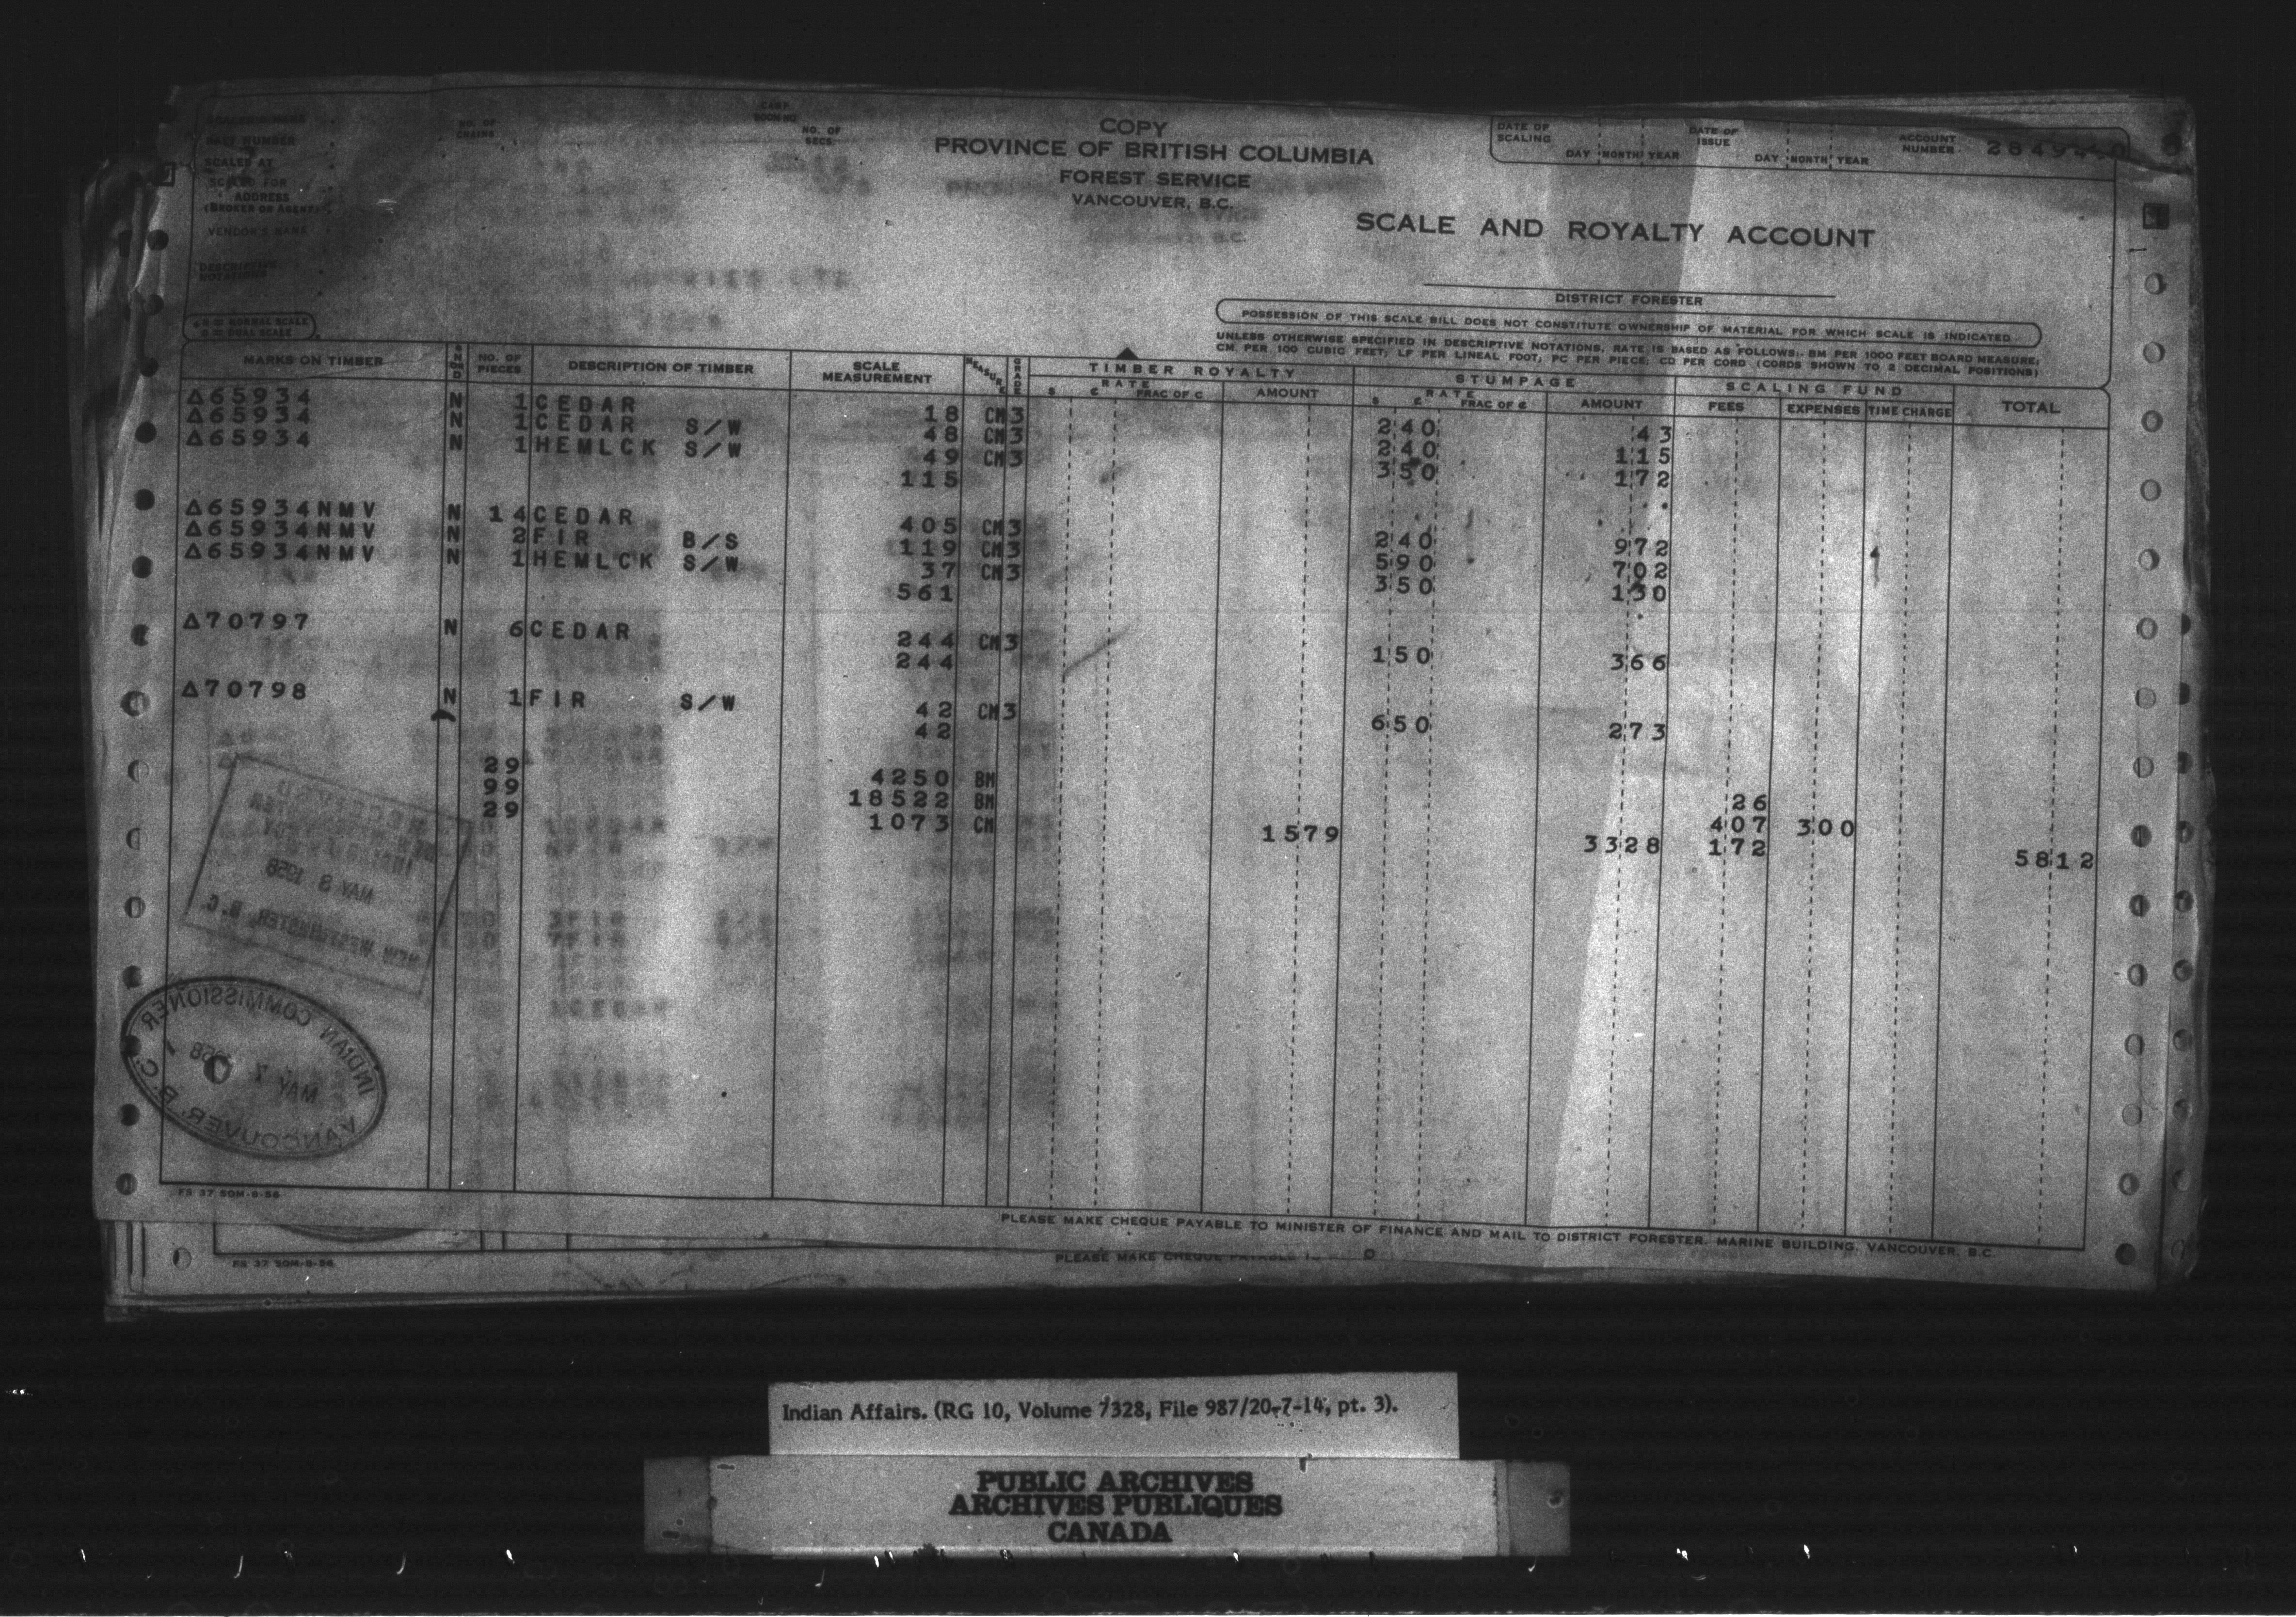 COPY
PROVINCE OF BRITISH COLUMBIA
FOREST SERVICE
VANCOUVER, B.C.
SCALER'S NAME
PART NUMBER
SCALED AT
SCALED FOR
ADDRESS
(BROKER OR AGENT)
VENDOR'S NAME
DESCRIPTIVE
NOTATIONS
NO. OF
CHAINS
CAMP
BOOM NO
NO. OF
SECS
DATE OF SCALING DAY MONTH YEAR DATE OF ISSUE DAY MONTH YEAR ACCOUNT NUMBER
SCALE AND ROYALTY ACCOUNT
DISTRICT FORESTER
POSSESSION OF THIS SCALE BILL DOES NOT CONSTITUTE OWNERSHIP OF MATERIAL FOR WHICH SCALE IS INDICATED
UNLESS OTHERWISE SPECIFIED IN DESCRIPTIVE NOTATIONS, RATE IS BASED AS FOLLOWS:- BM PER 1000 FEET BOARD MEASURE;
CM PER 100 CUBIC FEET; LF PER LINEAL FOOT; PC PER PIECE; CD PER CORD (CORDS SHOWN TO 2 DECIMAL POSITIONS)
N = NORMAL SCALE
D = DUAL SCALE
MARKS ON TIMBER N OR D NO. OF PIECES DESCRIPTION OF TIMBER SCALE MEASUREMENT MEASURE GRADE TIMBER ROYALTY STUMPAGE SCALING FUND TOTAL
$ RATE ¢ FRAC OF C AMOUNT $ RATE ¢ FRAC OF ¢ AMOUNT FEES EXPENSES TIME CHARGE
△65934 N 1 CEDAR 18 CM 3 240 43
△65934 N 1 CEDAR S/W 48 CM 3 240 115
△65934 N 1 HEMLCK S/W 49 CM 3 350 172
115
△65934NMV N 14 CEDAR 405 CM 3 240 972
△65934NMV N 2 FIR B/S 119 CM 3 590 702
△65934NMV N 1 HEMLCK S/W 37 CM 3 350 130
561
△70797 N 6 CEDAR 244 CM 3 150 366
244
△70798 N 1 FIR S/W 42 CM 3 650 273
42
29 4250 BM 26
99 18522 BM 407 300
29 1073 CM 1579 3328 172 5812
RECEIVED
MAY 8 1958
NEW WESTMINSTER, B.C.
INDIAN COMMISSIONER
MAY 7 1958
VANCOUVER, B.C.
FS 37 50M-8-56
PLEASE MAKE CHEQUE PAYABLE TO MINISTER OF FINANCE AND MAIL TO DISTRICT FORESTER, MARINE BUILDING, VANCOUVER, B.C.
FS 37 50M-8-56
PLEASE MAKE CHEQUE PAYABLE
Indian Affairs. (RG 10, Volume 7328, File 987/20-7-14, pt. 3).
PUBLIC ARCHIVES
ARCHIVES PUBLIQUES
CANADA